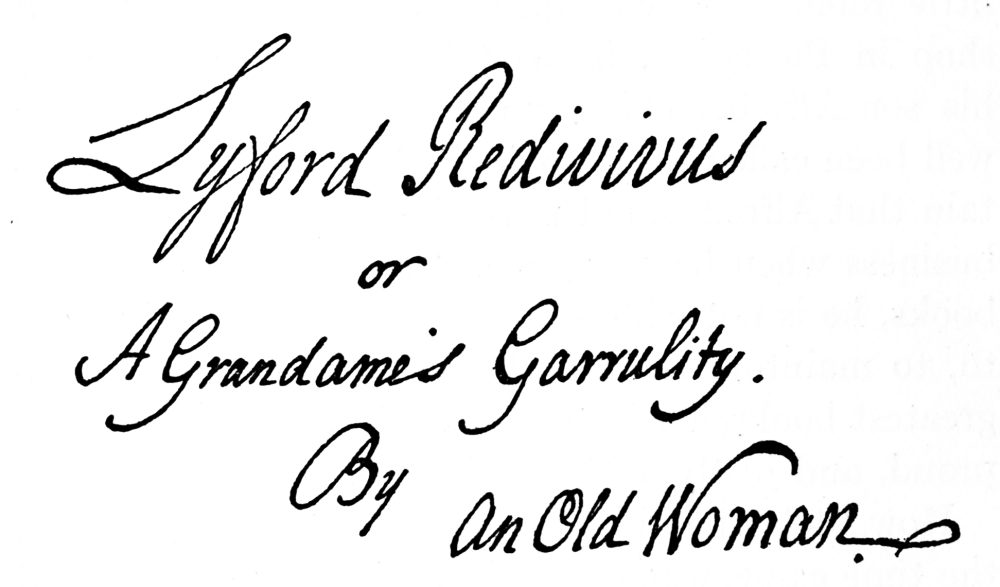 Lyford Redivivus
or
A Grandame's Garrulity.
By
An Old Woman.